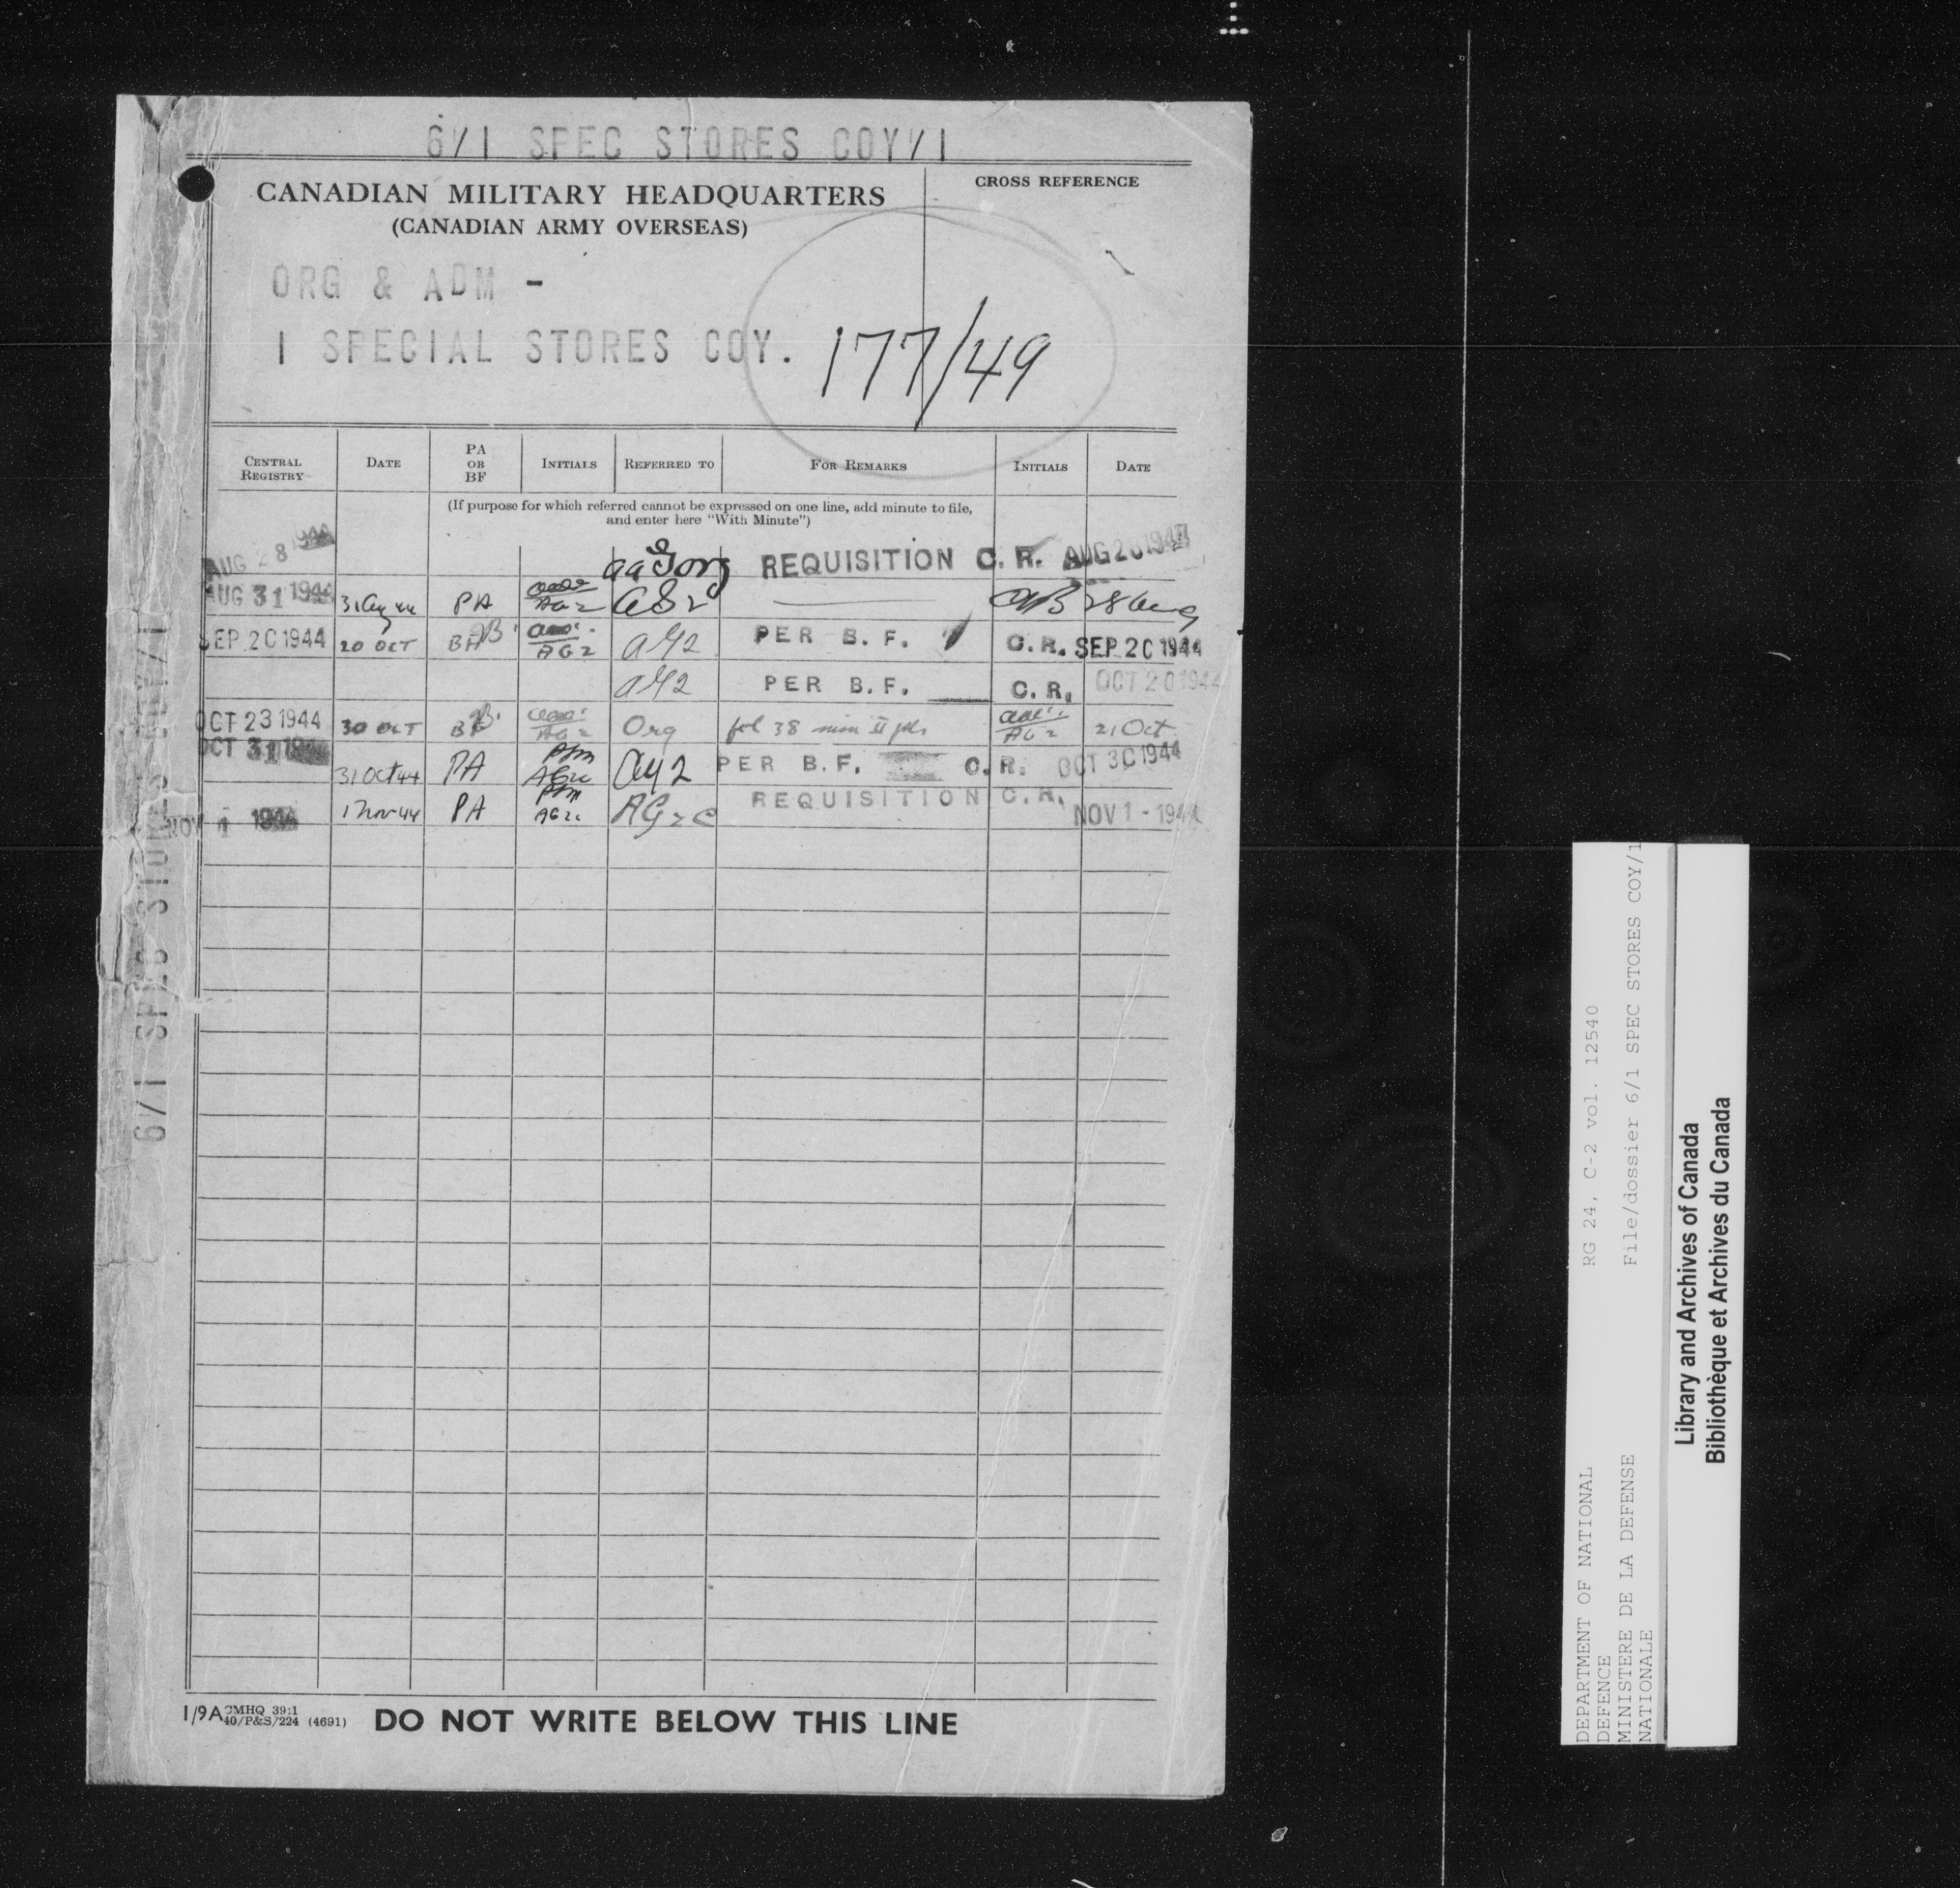 6/1 SPEC STORES COY/1
CANADIAN MILITARY HEADQUARTERS
(CANADIAN ARMY OVERSEAS)
CROSS REFERENCE
ORG & ADM -
1 SPECIAL STORES COY.
177/49
CENTRAL REGISTRY DATE PA OR BF INITIALS REFERRED TO FOR REMARKS INITIALS DATE
(If purpose for which referred cannot be expressed on one line, add minute to file,
and enter here "With Minute")
AUG 28 1944 REQUISITION C. R. AUG 28 1944
AUG 31 1944 31 Aug 44 PA AG2 28 Aug
SEP 20 1944 20 OCT AG2 AG2 PER B. F. C. R. SEP 20 1944
AG2 PER B. F. C. R. OCT 20 1944
OCT 23 1944 30 OCT AG2 Org fol 38 min II pls AG2 21 Oct
OCT 31 1944 31 Oct 44 PA AG2c AG2 PER B. F. C. R. OCT 30 1944
NOV 1 1944 1 Nov 44 PA AG2c AG2c REQUISITION C. R. NOV 1 - 1944
6/1 SPEC STORES COY/1
1/9A CMHQ 39:1
40/P&S/224 (4691)
DO NOT WRITE BELOW THIS LINE
DEPARTMENT OF NATIONAL
DEFENCE
MINISTERE DE LA DEFENSE
NATIONALE
RG 24, C-2 vol. 12540
File/dossier 6/1 SPEC STORES COY/1
Library and Archives of Canada
Bibliothèque et Archives du Canada